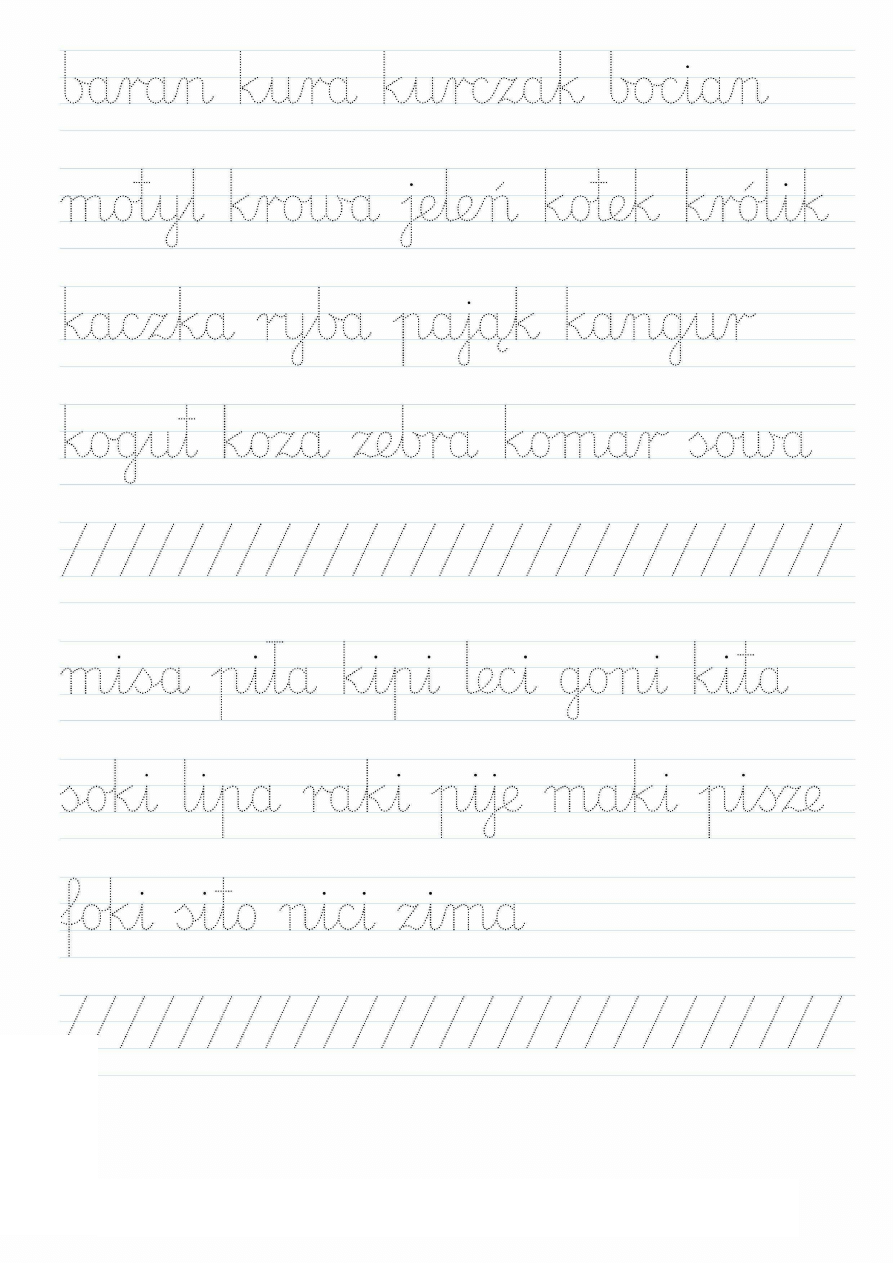 baran kura kurczak bocian
motyl krowa jeleń kotek królik
kaczka ryba pająk kangur
kogut koza zebra komar sowa
misa piła kipi leci goni kita
soki lipa raki pije maki pisze
foki sito nici zima